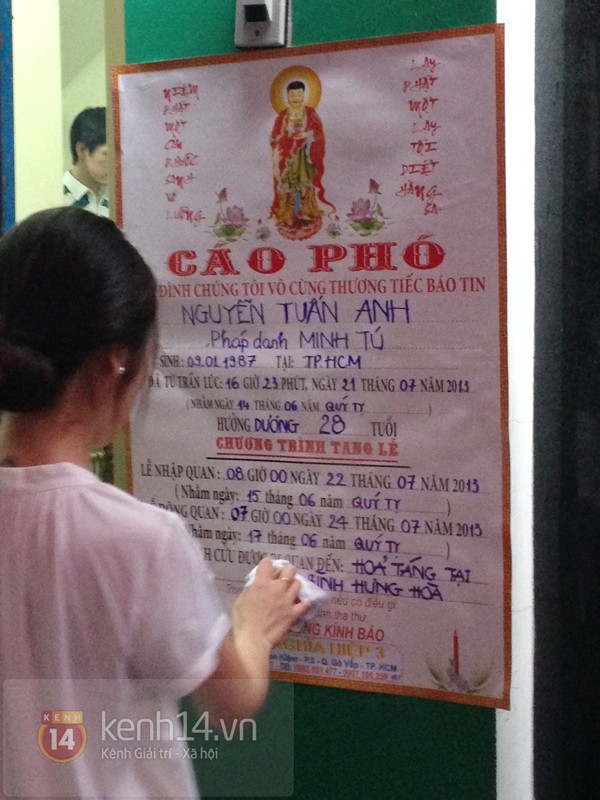 NIỆM
PHẬT
MỘT
CÂU
PHƯỚC
SANH
VÔ
LƯỢNG
LẠY
PHẬT
MỘT
LẠY
TỘI
DIỆT
HẰNG
SA
CÁO PHÓ
ĐÌNH CHÚNG TÔI VÔ CÙNG THƯƠNG TIẾC BÁO TIN
NGUYỄN TUẤN ANH
Pháp danh MINH TÚ
SINH: 09.01.1987 TẠI: TP.HCM
ĐÃ TỪ TRẦN LÚC: 16 GIỜ 23 PHÚT, NGÀY 21 THÁNG 07 NĂM 2013
(NHẰM NGÀY 14 THÁNG 06 NĂM QUÝ TỴ)
HƯỞNG DƯƠNG 28 TUỔI
CHƯƠNG TRÌNH TANG LỄ
LỄ NHẬP QUAN: 08 GIỜ 00 NGÀY 22 THÁNG 07 NĂM 2013
(Nhằm ngày: 15 tháng 06 năm QUÝ TỴ)
ĐỘNG QUAN: 07 GIỜ 00 NGÀY 24 THÁNG 07 NĂM 2013
Nhằm ngày: 17 tháng 06 năm QUÝ TỴ)
CỬU ĐƯỢC QUAN ĐẾN: HOẢ TÁNG TẠI
BÌNH HƯNG HOÀ
nếu có điều gì
tha thứ
KÍNH BÁO
NGHĨA HIỆP 3
P.5 - Q. Gò Vấp - TP. HCM
KENH 14
kenh14.vn
Kênh Giải trí - Xã hội